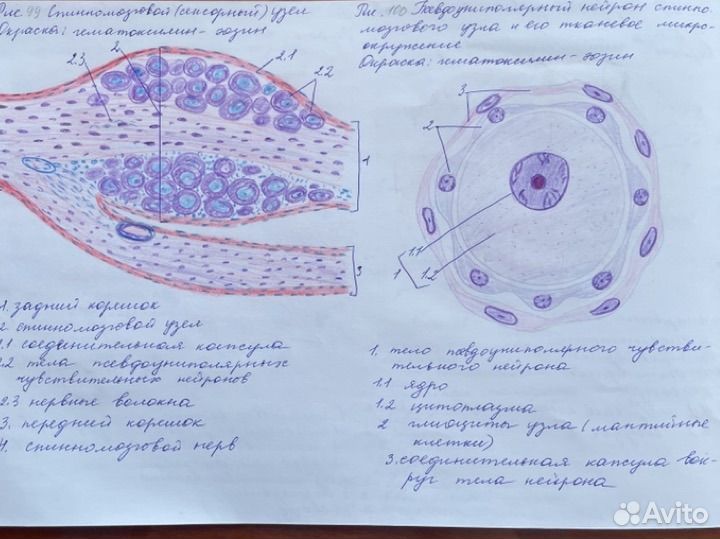 Рис 99 Спинномозговой (сенсорный) узел
Окраска: гематоксилин-эозин
2.3
2
2.1
2.2
1
3
1. задний корешок
2 спинномозговой узел
2.1 соединительная капсула
2.2 тела псевдоуниполярных
чувствительных нейронов
2.3 нервные волокна
3. передний корешок
4. спинномозговой нерв
Рис. 100 Псевдоуниполярный нейрон спинно
мозгового узла и его тканевое микро-
окружение
Окраска: гематоксилин-эозин
3
2
1.1
1
1.2
1. тело псевдоуниполярного чувстви-
тельного нейрона
1.1 ядро
1.2 цитоплазма
2 глиоциты узла (мантийные
клетки)
3. соединительная капсула вок-
руг тела нейрона
Avito